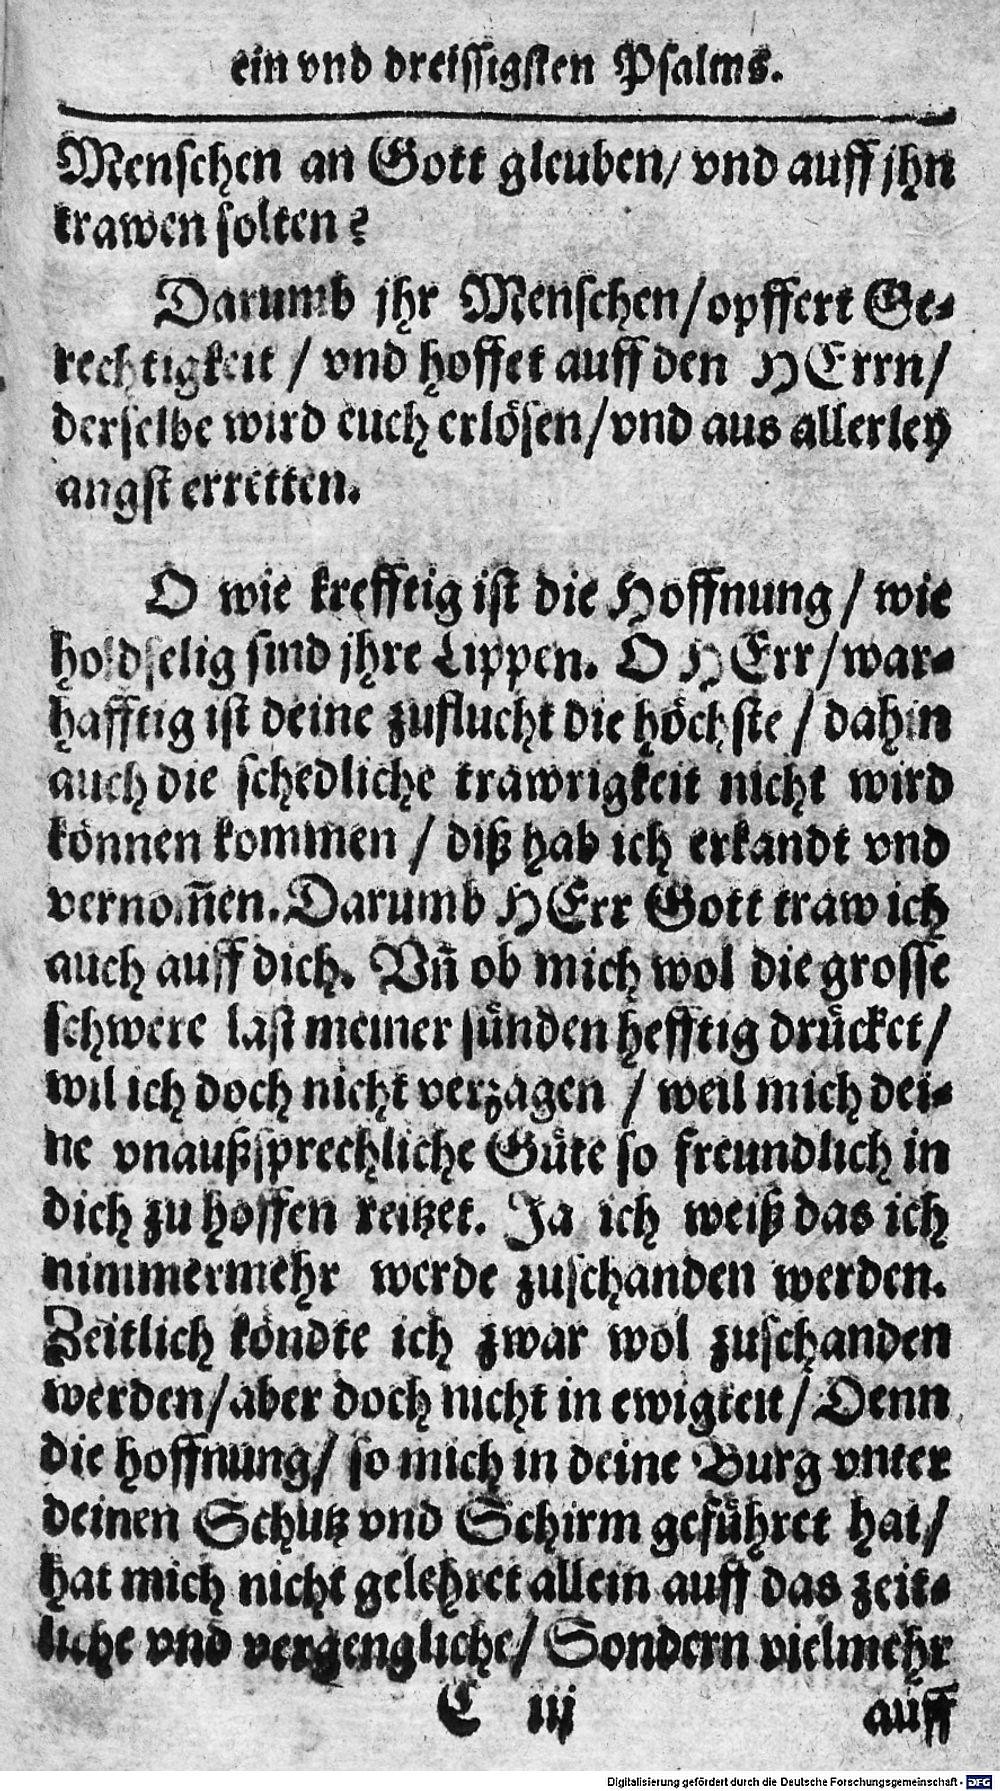 ein vnd dreissigsten Psalms.
Menschen an Gott gleuben/ vnd auff jhn
trawen solten?
Darumb jhr Menschen/ opffert Ge-
rechtigkeit / vnd hoffet auff den HErrn/
derselbe wird euch erlösen/ vnd aus allerley
angst erretten.
O wie krefftig ist die Hoffnung / wie
holdselig sind jhre Lippen. O HErr/ war-
hafftig ist deine zuflucht die höchste / dahin
auch die schedliche trawrigkeit nicht wird
können kommen / diß hab ich erkandt vnd
vernom̃en. Darumb HErr Gott traw ich
auch auff dich. Vñ ob mich wol die grosse
schwere last meiner sünden hefftig drücket/
wil ich doch nicht verzagen / weil mich dei-
ne vnaußsprechliche Güte so freundlich in
dich zu hoffen reitzet. Ja ich weiß das ich
nimmermehr werde zuschanden werden.
Zeitlich köndte ich zwar wol zuschanden
werden/ aber doch nicht in ewigkeit/ Denn
die hoffnung/ so mich in deine Burg vnter
deinen Schutz vnd Schirm geführet hat/
hat mich nicht gelehret allein auff das zeit-
liche vnd vergengliche/ Sondern vielmehr
C iij auff
Digitalisierung gefördert durch die Deutsche Forschungsgemeinschaft - DFG